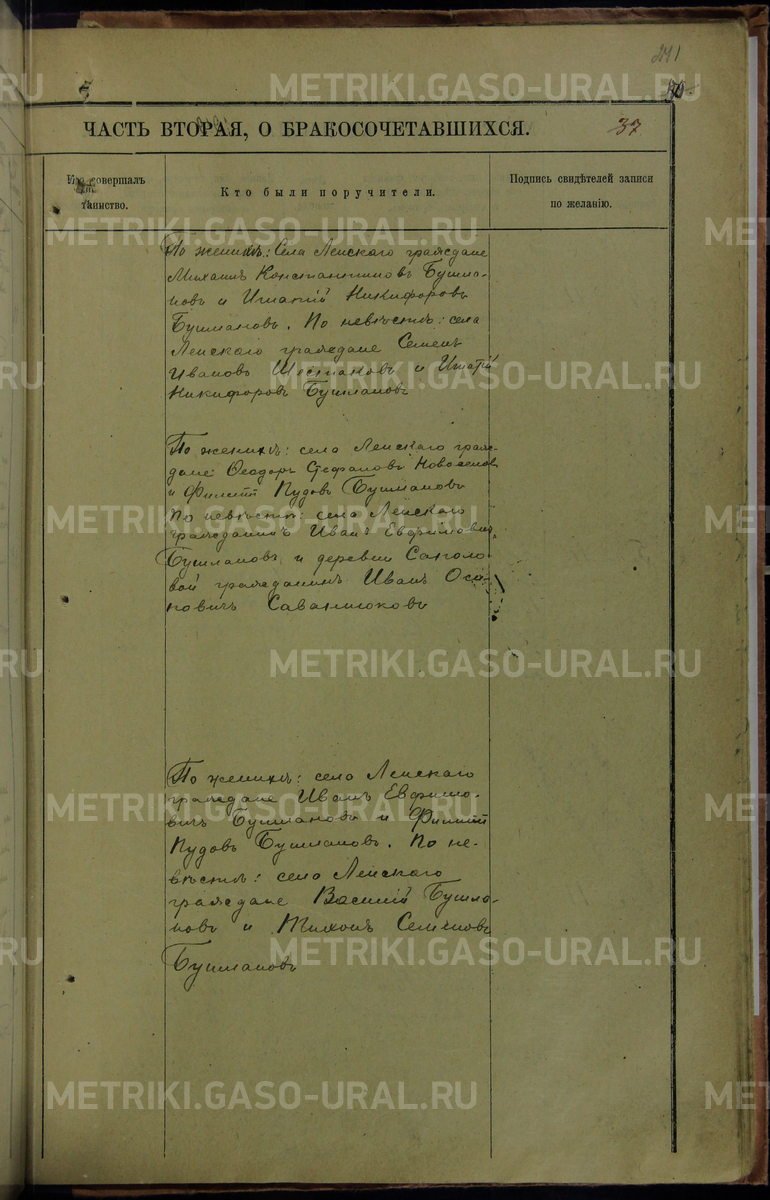 241
ЧАСТЬ ВТОРАЯ, О БРАКОСОЧЕТАВШИХСЯ.
37
Кто совершалъ
таинство.
Кто были поручители.
Подпись свидѣтелей записи
по желанію.
По женихѣ: Села Ленскаго граждане
Михаилъ Константиновъ Бушма-
новъ и Игнатій Никифоровъ
Бушмановъ. По невѣстѣ: села
Ленскаго граждане Семенъ
Ивановъ Шестаковъ и Игнатій
Никифоровъ Бушмановъ
По женихѣ: села Ленскаго граж-
дане: Ѳеодоръ Стефановъ Новоселовъ
и Филиппъ Пудовъ Бушмановъ
По невѣстѣ: села Ленскаго
гражданинъ Иванъ Евфимовичъ
Бушмановъ и деревни
гражданинъ Иванъ Оси-
повичъ
По женихѣ: села Ленскаго
граждане Иванъ Евфимо-
вичъ Бушмановъ и Филиппъ
Пудовъ Бушмановъ. По не-
вѣстѣ: села Ленскаго
граждане Василій Бушма-
новъ и Тихонъ Семеновъ
Бушмановъ
METRIKI.GASO-URAL.RU